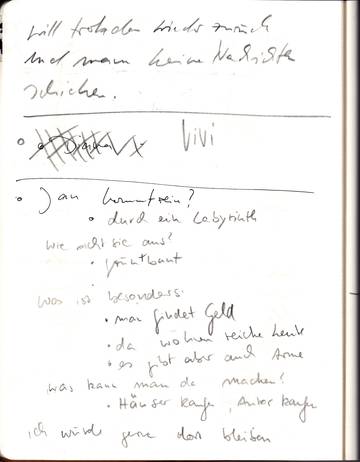 will trotzdem wieder zurück
und man keine Nachrichten
schicken.
Vivi
Jan kommt rein?
• durch ein Labyrinth
wie sieht sie aus?
• grün + bunt
was ist besonders:
• man findet Geld
• da wohnen reiche Leute
• es gibt aber auch Arme
was kann man da machen?
• Häuser kaufen, Autos kaufen
ich würde gerne dort bleiben